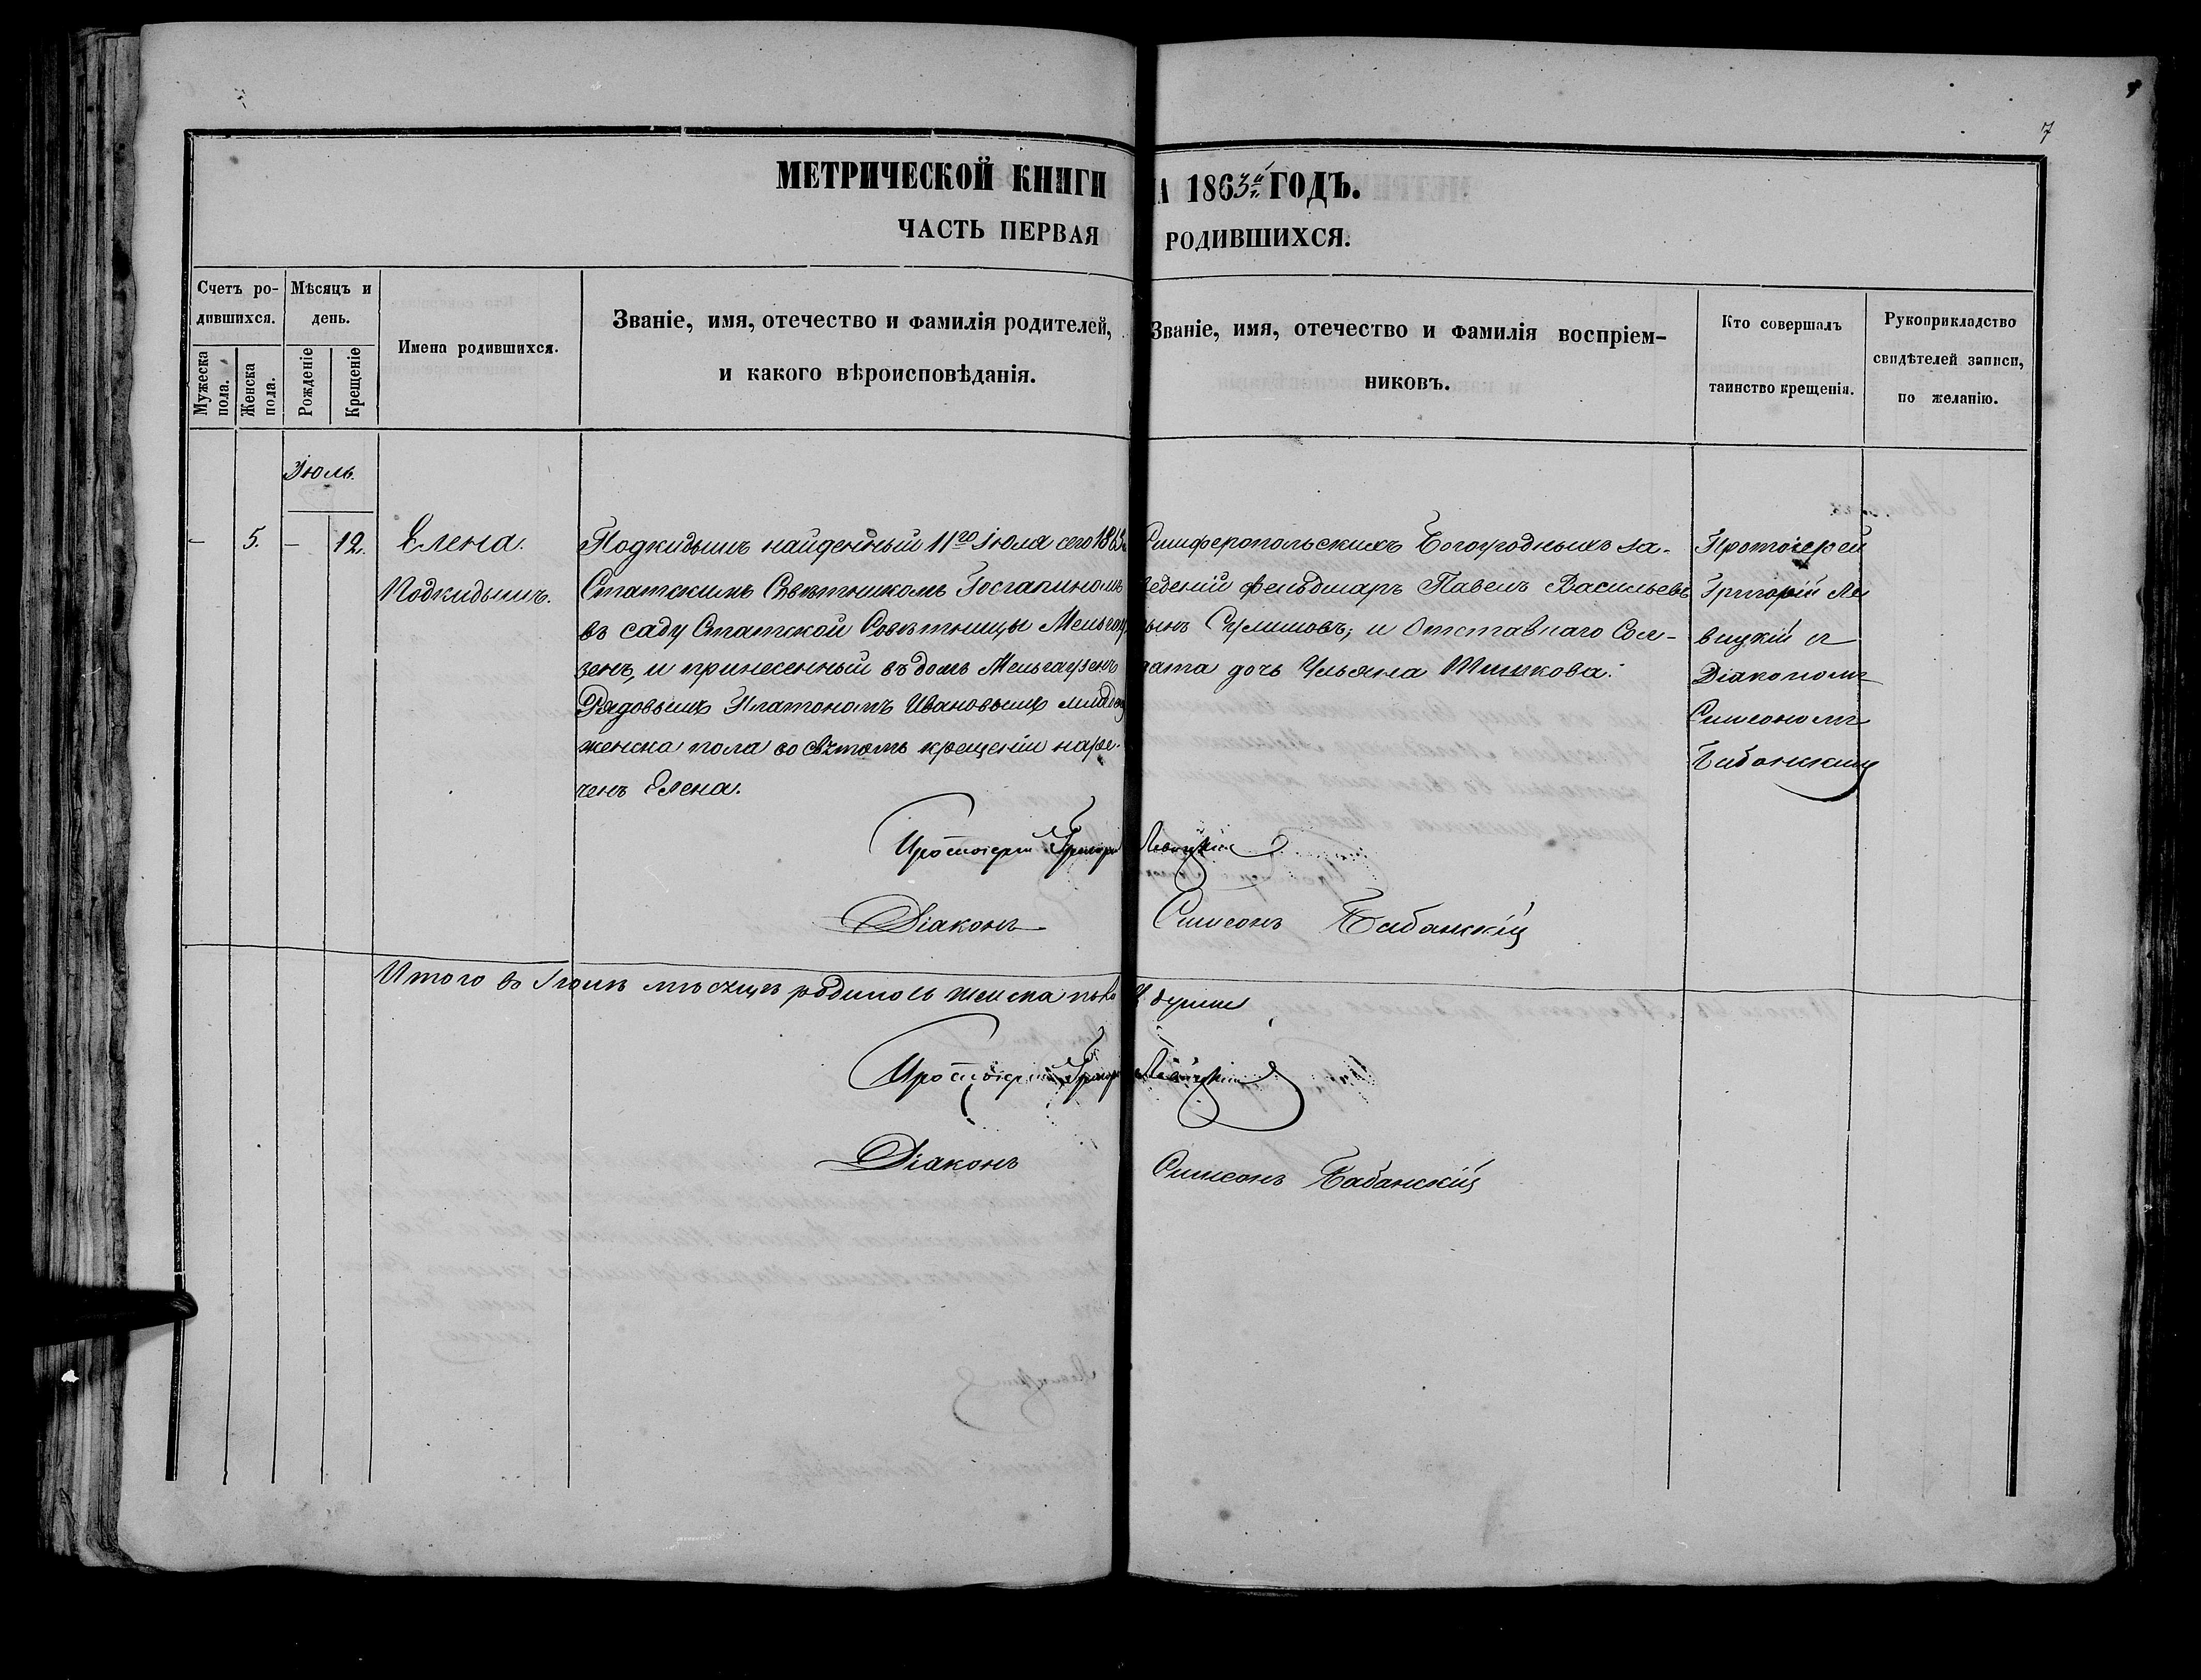 7
МЕТРИЧЕСКОЙ КНИГИ НА 1863й ГОДЪ.
ЧАСТЬ ПЕРВАЯ РОДИВШИХСЯ.
Счетъ родившихся.
Мужеска пола.
Женска пола.
Мѣсяцъ и день.
Рожденіе
Крещеніе
Имена родившихся.
Званіе, имя, отечество и фамилія родителей,
и какого вѣроисповѣданія.
Званіе, имя, отечество и фамилія воспріем-
никовъ.
Кто совершалъ
таинство крещенія.
Рукоприкладство
свидѣтелей записи,
по желанію.
Іюль.
— 5. — 12.
Елена.
Подкидышъ.
Подкидышъ найденный 11го Іюля сего 1863
Статскимъ Совѣтникомъ
въ саду Статской Совѣтницы Мельгау
зенъ, и принесенный въ домъ Мельгаузенъ
Рядовымъ Платономъ Ивановымъ млад
женска пола во свѧтомъ крещеніи наре-
ченъ Елена.
Симферопольскихъ Богоугодныхъ за-
веденій фельдшаръ Павелъ Васильевъ
сынъ и Отставнаго Сол-
дата дочь Ульяна
Протоіерей
Григорій Ле
вицкій съ
Діакономъ
Симеономъ
Бабанскимъ
Протоіерей Григорій Левицкій
Діаконъ Симеонъ Бабанскій
Итого въ Іюлѣ мѣсяцѣ родилось женска пола душа
Протоіерей Григорій Левицкій
Діаконъ Симеонъ Бабанскій